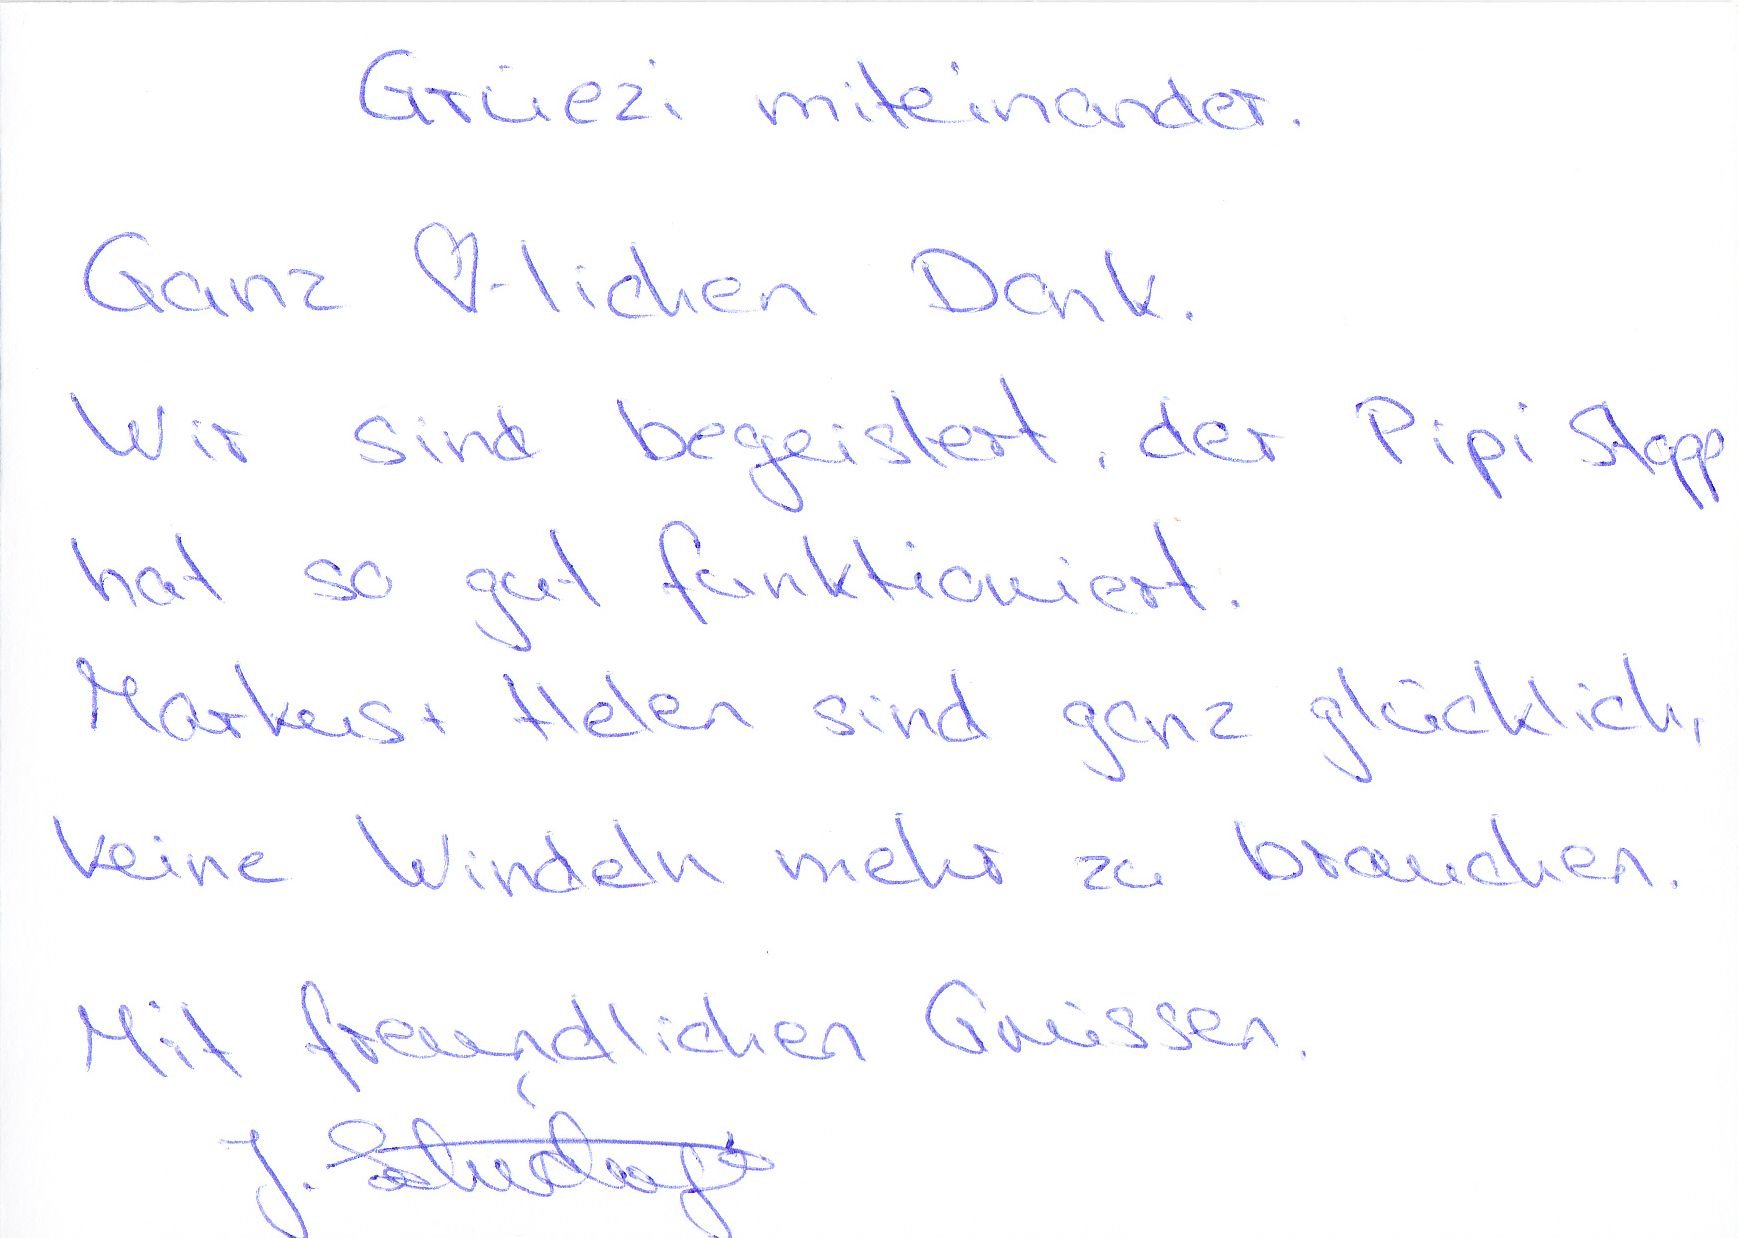 Grüezi miteinander.
Ganz ♡-lichen Dank.
Wir sind begeistert, der Pipi Stopp
hat so gut funktioniert.
Markus + Helen sind ganz glücklich,
keine Windeln mehr zu brauchen.
Mit freundlichen Grüssen.
J.